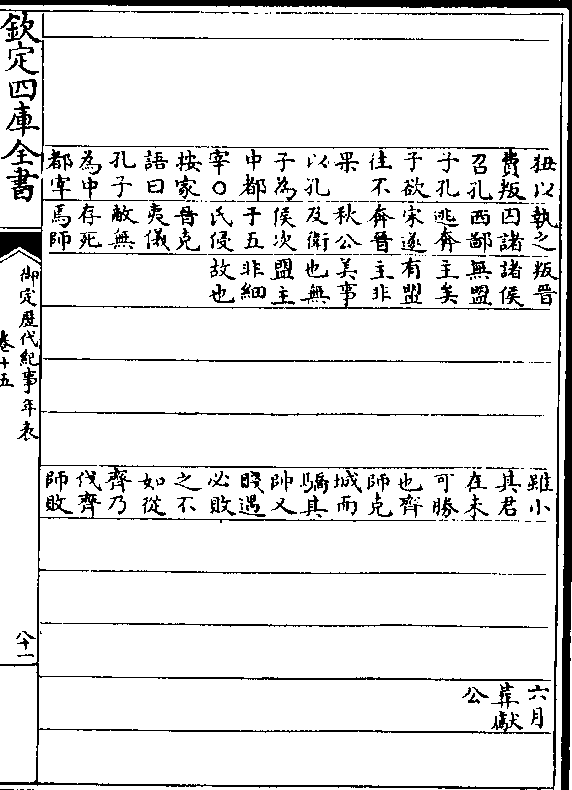 狃以
費叛
召孔
子孔
子欲
往不
果
以孔
子為
中都
宰〇
按家
語曰
孔子
為中
都宰
執之
因諸
西鄙
逃奔
宋遂
奔晉
秋公
及衛
侯次
于五
氏侵
晉克
夷儀
敝無
存死
馬師
叛晉
諸侯
無盟
主矣
有盟
主非
美事
也無
盟主
非細
故也
雖小
其君
在未
可勝
也齊
師克
城而
驕其
帥又
賤遇
必敗
之不
如從
齊乃
伐齊
師敗
六月
葬獻
公
欽定四庫全書
御定歷代紀事年表
卷十五
八十一